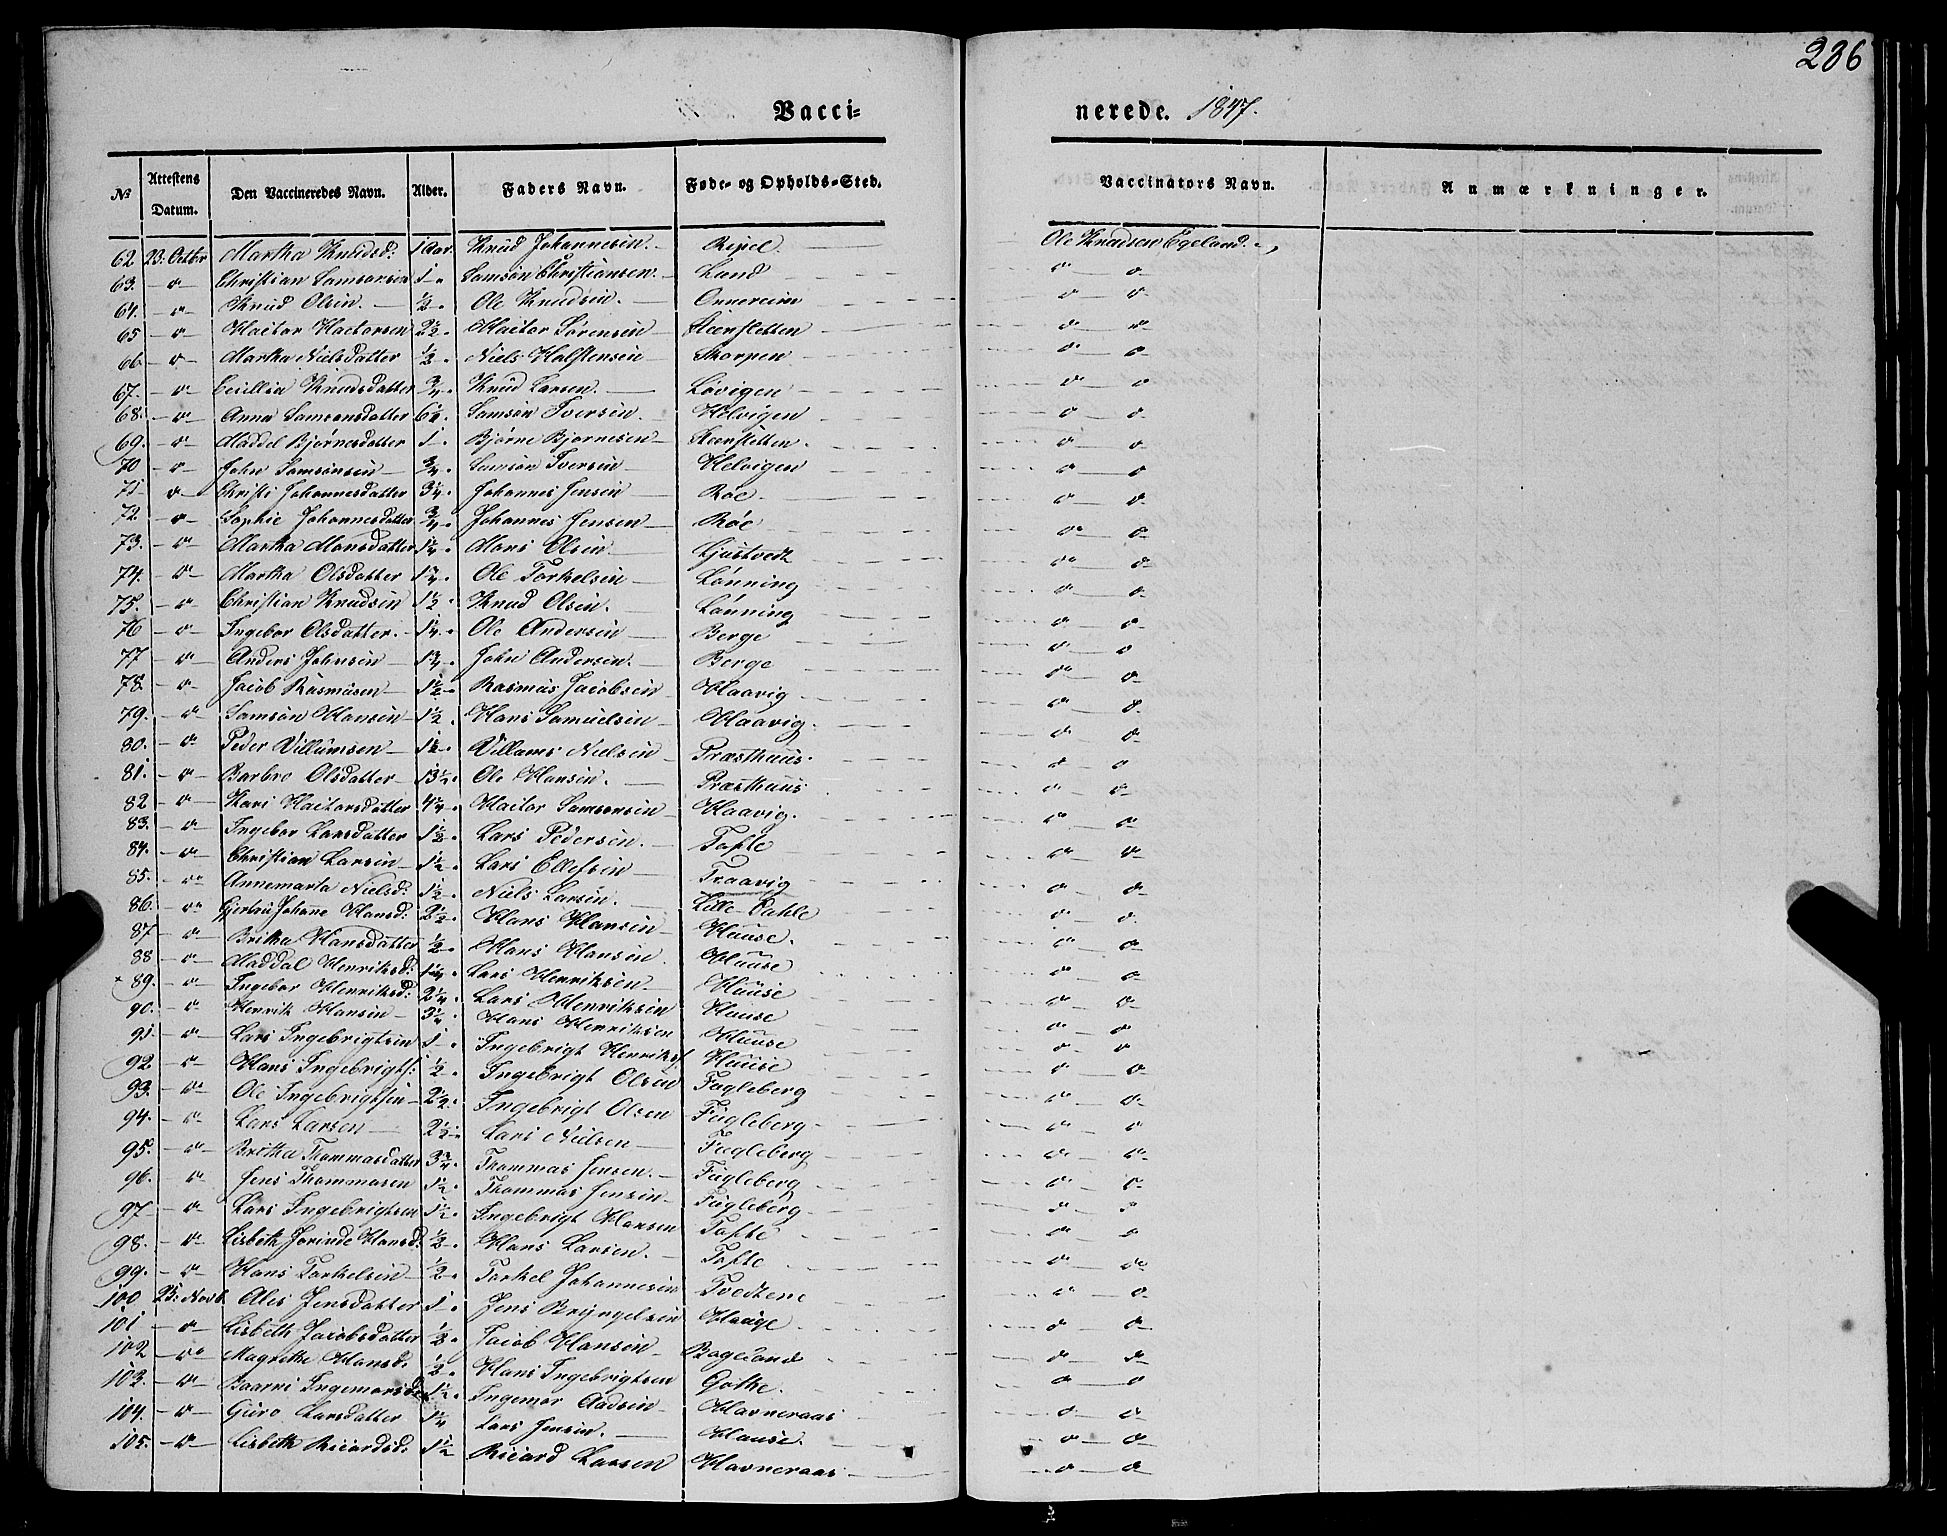 236
Vacci- nerede. 1847.
№ Attestens Datum. Den Vaccineredes Navn. Alder. Faders Navn. Føde- og Opholds-Sted. Vaccinators Navn. Anmærkninger.
62 23. Octbr Martha Knudsd: 1 Aar. Knud Johannesen. Ole Knudsen Egeland.
63. -"- Christian Samsonsen 1 -" Samson Christiansen. Sand " "
64. -"- Knud Olsen. ½ " Ole Knudsen. Onnereim " "
65 -"- Hactor Hactorsen 2½ " Hactor Sørensen Steensletten " "
66. -"- Martha Nielsdatter ½ " Niels Halstensen Skorpen " "
67. -"- Cecillia Knudsdatter ¾ " Knud Larsen. Løvigen " "
68. -"- Anna Samsonsdatter 6½ " Samson Iversen. Helvigen " "
69. -"- Maddel Bjørnesdatter 1 " Bjørne Bjørnesen Steensletten. " "
70 -"- John Samsonsen ¾ " Samson Iversen Helvigen " "
71 -"- Christi Johannesdatter 3¼ " Johannes Jensen Røe. " "
72. -"- Sophie Johannesdatter ¾ " Johannes Jensen Røe " "
73. -"- Martha Monsdatter 1¼ " Mons Olsen Gjustvedt " "
74. -"- Martha Olsdatter 1¾ " Ole Torkelsen Lønning " "
75. -"- Christian Knudsen 1½ " Knud Olsen. Lønning " "
76 -"- Ingebor Olsdatter. 1¼ " Ole Andersen Berge " "
77 -"- Anders Johnsen 1¾ " John Andersen. Berge " "
78. -"- Jacob Rasmusen 1½ " Rasmus Jacobsen Haavig " "
79. -"- Samson Hansen 1½ " Hans Samuelsen Haavig. " "
80. -"- Peder Villumsen 1½ " Villams Nielsen Præsthuus. " "
81. -"- Barbro Olsdatter 13½ " Ole Hansen. Præsthuus " "
82 -"- Kari Hactorsdatter 4¼ " Hactor Samsonsen Haavig. " "
83. -"- Ingebor Larsdatter 1½ " Lars Pedersen. Tofte " "
84. -"- Christian Larsen 1½ " Lars Ellefsen Traavig " "
85. -"- Annemarta Nielsd: 1½ " Niels Larsen. Lille-Dahle " "
86. -"- Gjertru Johanne Hansd: 2½ " Hans Hansen Huuse. " "
87 -"- Britha Hansdatter ½ " Hans Hansen. Huuse " "
88 -"- Maddal Henriksd: 1¼ " Lars Henriksen Huuse " "
× 89. -"- Ingebor Henriksd: 2¼ " Lars Henriksen Huuse " "
90. -"- Henrik Hansen 3¼ " Hans Henriksen Huuse " "
91. -"- Lars Ingebrigtsen 1 " Ingebrigt Henriks: Huuse " "
92 -"- Hans Ingebrigts: ½ " Ingebrigt Olsen Fugleberg " "
93. -"- Ole Ingebrigtsen 2½ " Ingebrigt Olsen Fugleberg " "
94. -"- Lars Larsen 2½ " Lars Nielsen Fugleberg " "
95. -"- Britha Thommasdatter 3¾ " Thommas Jensen. Fugleberg " "
96. -"- Jens Thommasen 1½ " Thommas Jensen Fugleberg " "
97 -"- Lars Ingebrigtsen 1½ " Ingebrigt Hansen Tofte " "
98. -"- Lisbeth Jorinde Hansd: ½ " Hans Larsen. Tofte " "
99. -"- Hans Torkelsen ½ " Torkel Johannesen Tvedtene " "
100 25: Novb Ales Jensdatter 1 " Jens Bryngelsen Hauge. " "
101. -"- Lisbeth Jacobsdatter ½ " Jacob Hansen Baglund " "
102 -"- Magrethe Hansd: ½ " Hans Ingebrigtsen Gothe. " "
103. -"- 1½ " Ingemor Aadsen Havneraas " "
104. -"- Guro Larsdatter 1¼ Lars Jensen. Hause. " "
105. -"- Lisbeth Ricardsd: 1½ Ricard Larsen Havneraas " "